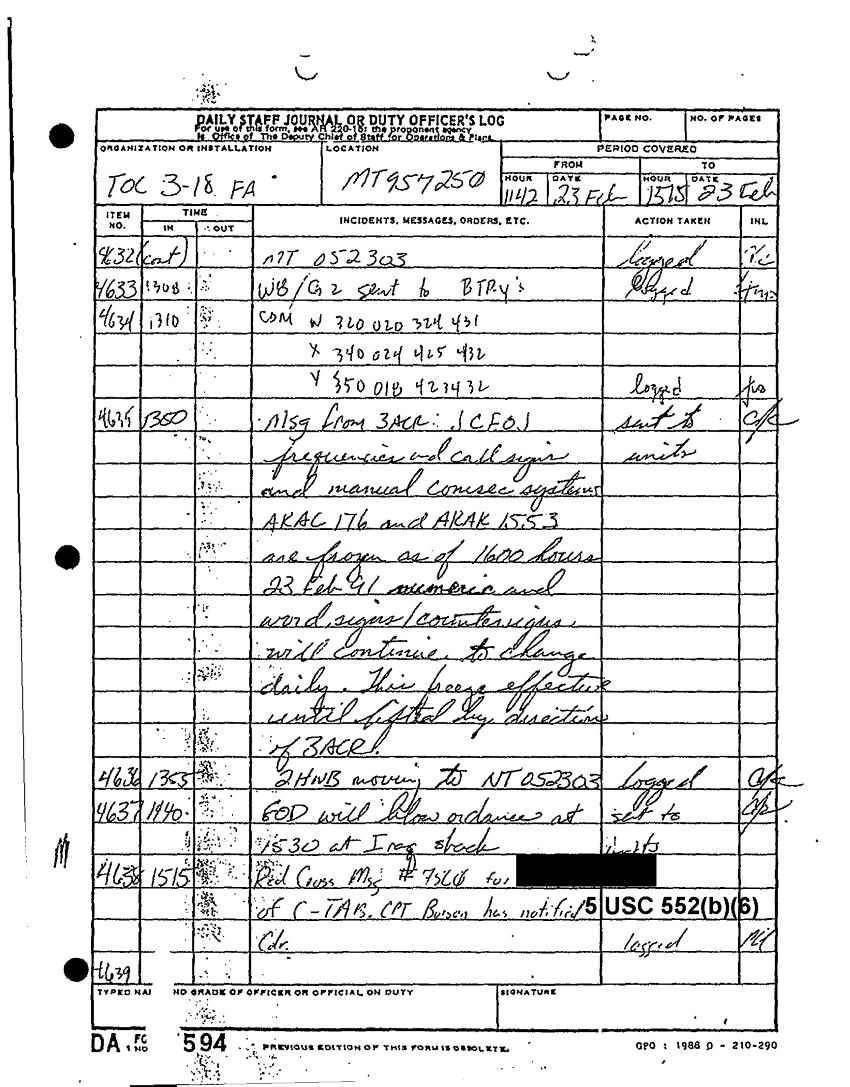 DAILY STAFF JOURNAL OR DUTY OFFICER'S LOG
For use of this form, see AR 220-15; the proponent agency
is Office of The Deputy Chief of Staff for Operations & Plans.
PAGE NO.
NO. OF PAGES
ORGANIZATION OR INSTALLATION
TOC 3-18 FA
LOCATION
MT957250
PERIOD COVERED
FROM
TO
HOUR
DATE
HOUR
DATE
1142 23 Feb 1515 23 Feb
ITEM NO.
TIME
IN
OUT
INCIDENTS, MESSAGES, ORDERS, ETC.
ACTION TAKEN
INL
4632 (cont) MT 052303 logged
4633 1308 WB/G2 sent to BTRY's logged
4634 1310 COM W 320 020 324 431
X 340 024 425 432
Y 350 018 423432 logged
4635 1350 Msg from 3ACR: (CEOI sent to
frequencies and call signs units
and manual comsec systems
AKAC 176 and AKAK 1553
are frozen as of 1600 hours
23 Feb 91 numeric and
word signs/countersigns
will continue to change
daily. This freeze effective
until lifted by direction
of 3ACR.
4636 1355 2HNB moving to NT 052303 logged
4637 1440 EOD will blow ordance at sent to
1530 at Iraq units
4638 1515 Red Cross Msg # for
of C-TAB. CPT has notified 5 USC 552(b)(6)
Cdr. logged
4639
TYPED NA ND GRADE OF OFFICER OR OFFICIAL ON DUTY
SIGNATURE
DA FO 1 NO 594
PREVIOUS EDITION OF THIS FORM IS OBSOLETE.
GPO : 1988 O - 210-290